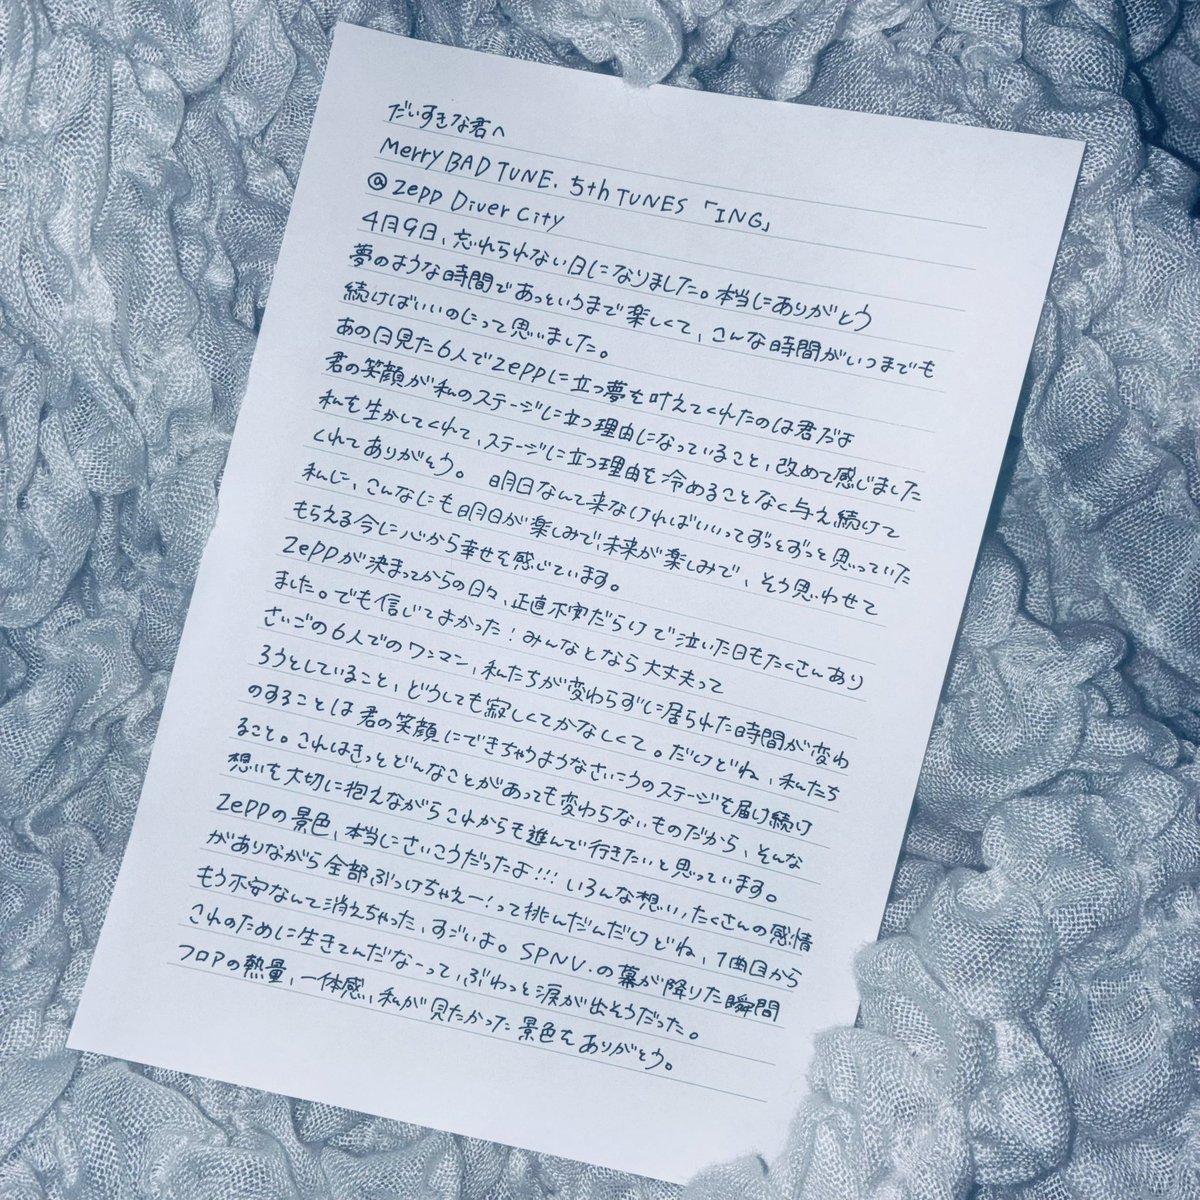 だいすきな君へ
Merry BAD TUNE. 5th TUNES「ING」
@Zepp Diver City
4月9日、忘れられない日になりました。本当にありがとう
夢のような時間であっというまで楽しくて、こんな時間がいつまでも
続けばいいのにって思いました。
あの日見た6人でZeppに立つ夢を叶えてくれたのは君だよ
君の笑顔が私のステージに立つ理由になっていること、改めて感じました
私を生かしてくれて、ステージに立つ理由を冷めることなく与え続けて
くれてありがとう。 明日なんて来なければいいってずっとずっと思っていた
私に、こんなにも明日が楽しみで、未来が楽しみで、そう思いわせて
もらえる今に心から幸せを感じています。
Zeppが決まってからの日々、正直不安だらけで泣いた日もたくさんあり
ました。でも信じてよかった！みんなとなら大丈夫って
さいごの6人でのワンマン、私たちが変わらずに居られた時間が変わ
ろうとしていること、どうしても寂しくてかなしくて。だけどね、私たち
のすることは君の笑顔にできちゃうようなさいこうのステージを届け続け
ること。これはきっとどんなことがあっても変わらないものだから、そんな
想いを大切に抱えながらこれからも進んで行きたいと思っています。
Zeppの景色、本当にさいこうだったよ!!! いろんな想い、たくさんの感情
がありながら全部ぶつけちゃえー！って挑んだんだけどね、1曲目から
もう不安なんて消えちゃった、すごいよ。SPNV.の幕が降りた瞬間
これのために生きてんだなーって、ぶわっと涙が出そうだった。
フロアの熱量、一体感、私が見たかった景色をありがとう。